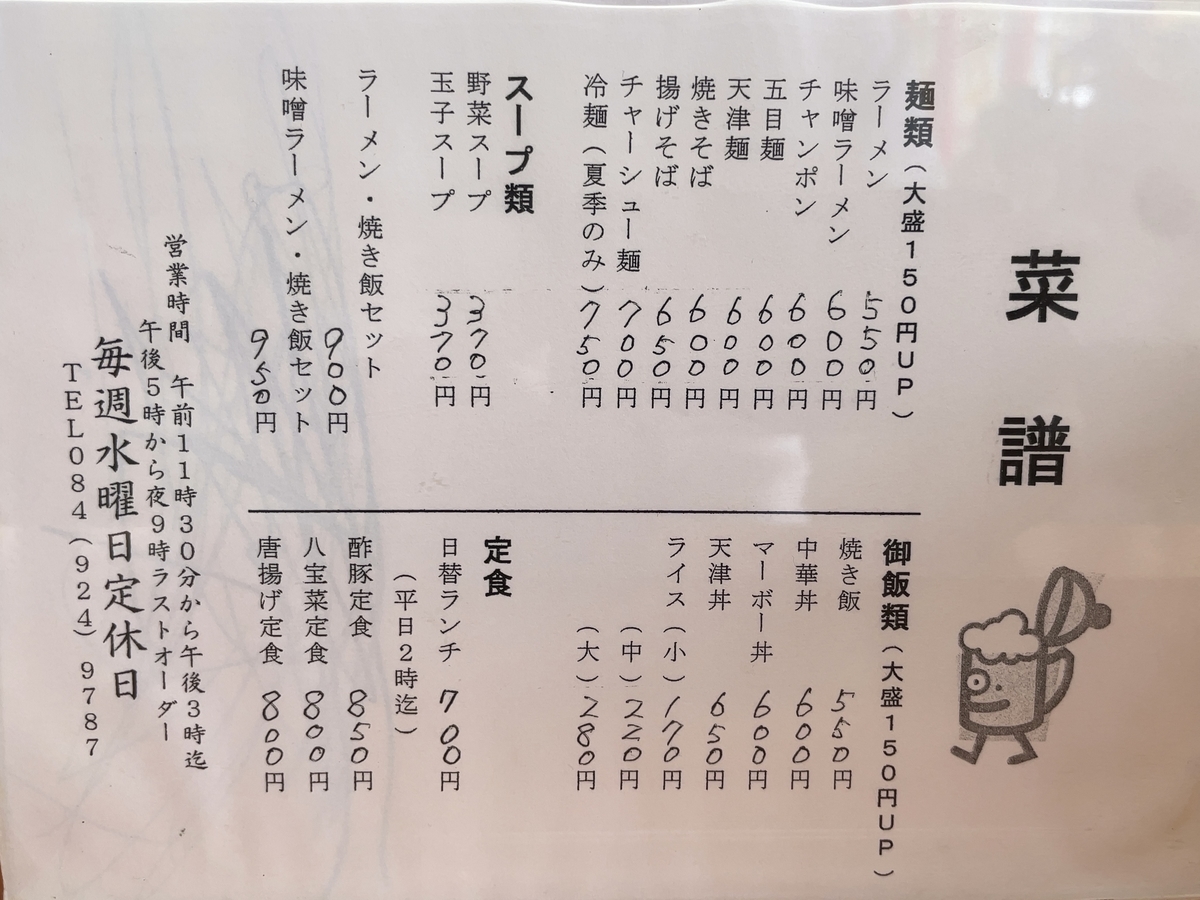 菜譜
麺類（大盛150円UP）
ラーメン 550円
味噌ラーメン 600円
チャンポン 600円
五目麺 600円
天津麺 600円
焼きそば 600円
揚げそば 650円
チャーシュー麺 700円
冷麺（夏季のみ）750円
スープ類
野菜スープ 370円
玉子スープ 370円
ラーメン・焼き飯セット
900円
味噌ラーメン・焼き飯セット
950円
御飯類（大盛150円UP）
焼き飯 550円
中華丼 600円
マーボー丼 600円
天津丼 650円
ライス（小）170円
（中）220円
（大）280円
定食
日替ランチ 700円
（平日2時迄）
酢豚定食 850円
八宝菜定食 800円
唐揚げ定食 800円
営業時間 午前11時30分から午後3時迄
午後5時から夜9時ラストオーダー
毎週水曜日定休日
TEL084（924）9787